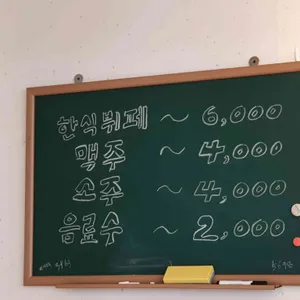 한식뷔페 ~ 6,000
맥주 ~ 4,000
소주 ~ 4,000
음료수 ~ 2,000